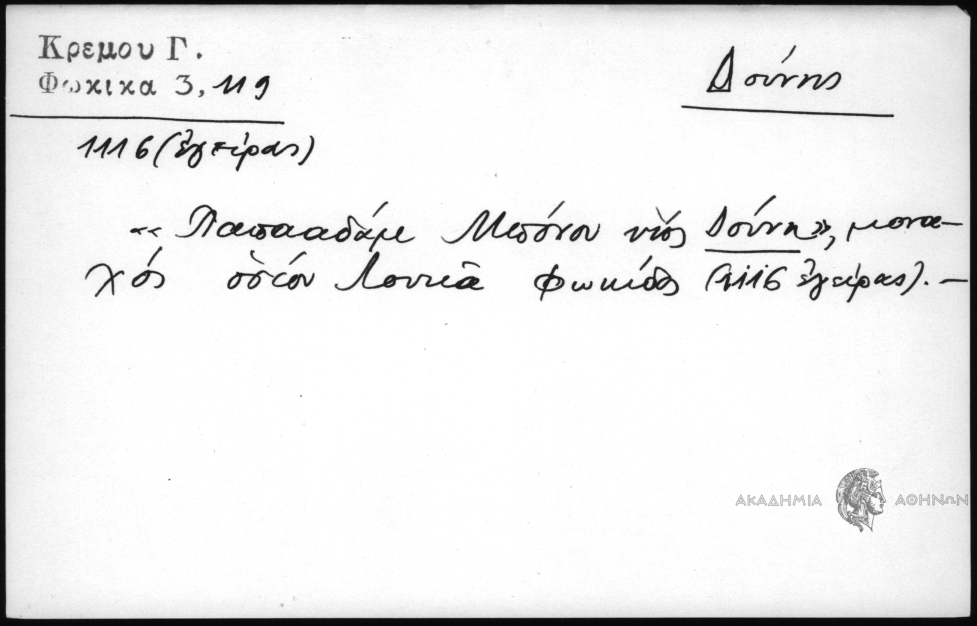 Κρεμου Γ.
Φωκικα 3, 119
Δούνης
1116 (ἐγείρας)
«Παπααδάμε Μπόνου υἱός Δούνη», μονα-
χός ὁσίου Λουκᾶ Φωκίδος (1116 ἐγείρας). –
ΑΚΑΔΗΜΙΑ ΑΘΗΝΩΝ